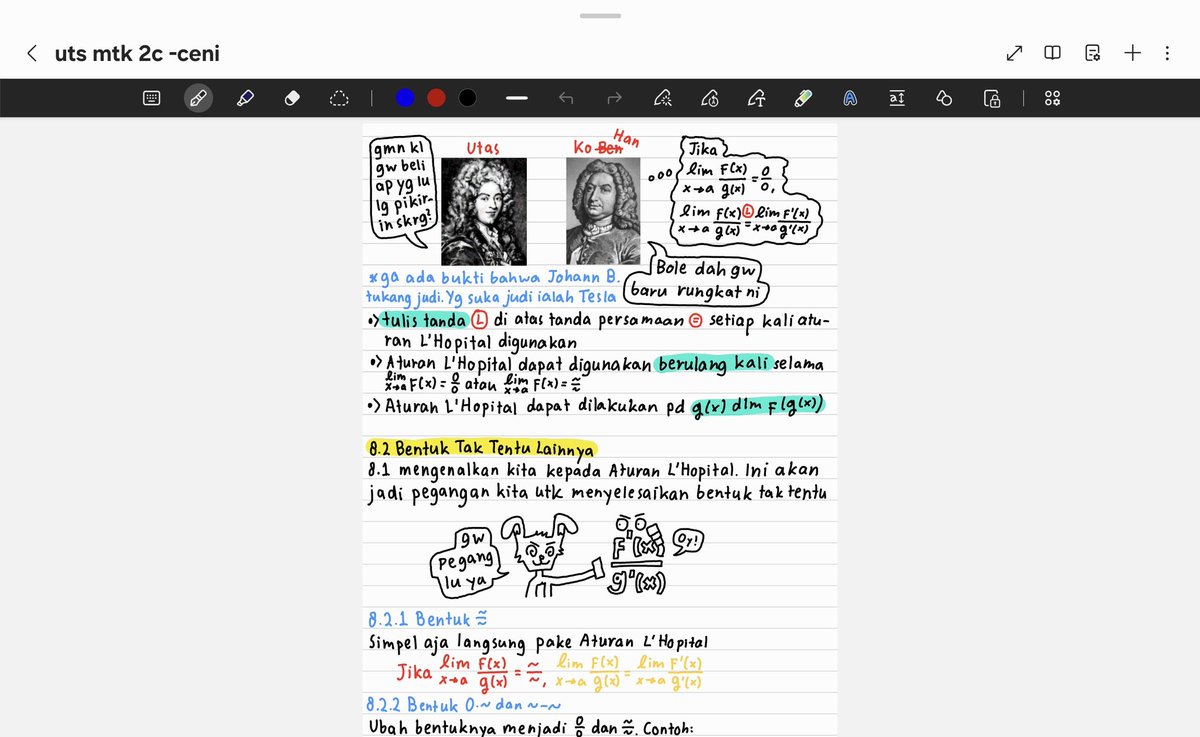 uts mtk 2c -ceni
gmn kl
gw beli
ap yg lu
lg pikir-
in skrg?
Utas
Ko Ben Han
Jika
lim F(x)/g(x) = 0/0,
x→a
lim F(x)/g(x) Ⓛ= lim F'(x)/g'(x)
x→a x→a
Bole dah gw
baru rungkat ni
*ga ada bukti bahwa Johann B.
tukang judi. Yg suka judi ialah Tesla
•> tulis tanda Ⓛ di atas tanda persamaan ⊜ setiap kali atu-
ran L'Hopital digunakan
•> Aturan L'Hopital dapat digunakan berulang kali selama
lim x→a F(x) = 0/0 atau lim x→a F(x) = ~/~
•> Aturan L'Hopital dapat dilakukan pd g(x) dlm F(g(x))
8.2 Bentuk Tak Tentu Lainnya
8.1 mengenalkan kita kepada Aturan L'Hopital. Ini akan
jadi pegangan kita utk menyelesaikan bentuk tak tentu
gw
pegang
lu ya
F'(x)
g'(x)
Oy!
8.2.1 Bentuk ~/~
Simpel aja langsung pake Aturan L'Hopital
Jika lim x→a F(x)/g(x) = ~/~, lim x→a F(x)/g(x) = lim x→a F'(x)/g'(x)
8.2.2 Bentuk 0.~ dan ~-~
Ubah bentuknya menjadi 0/0 dan ~/~. Contoh: